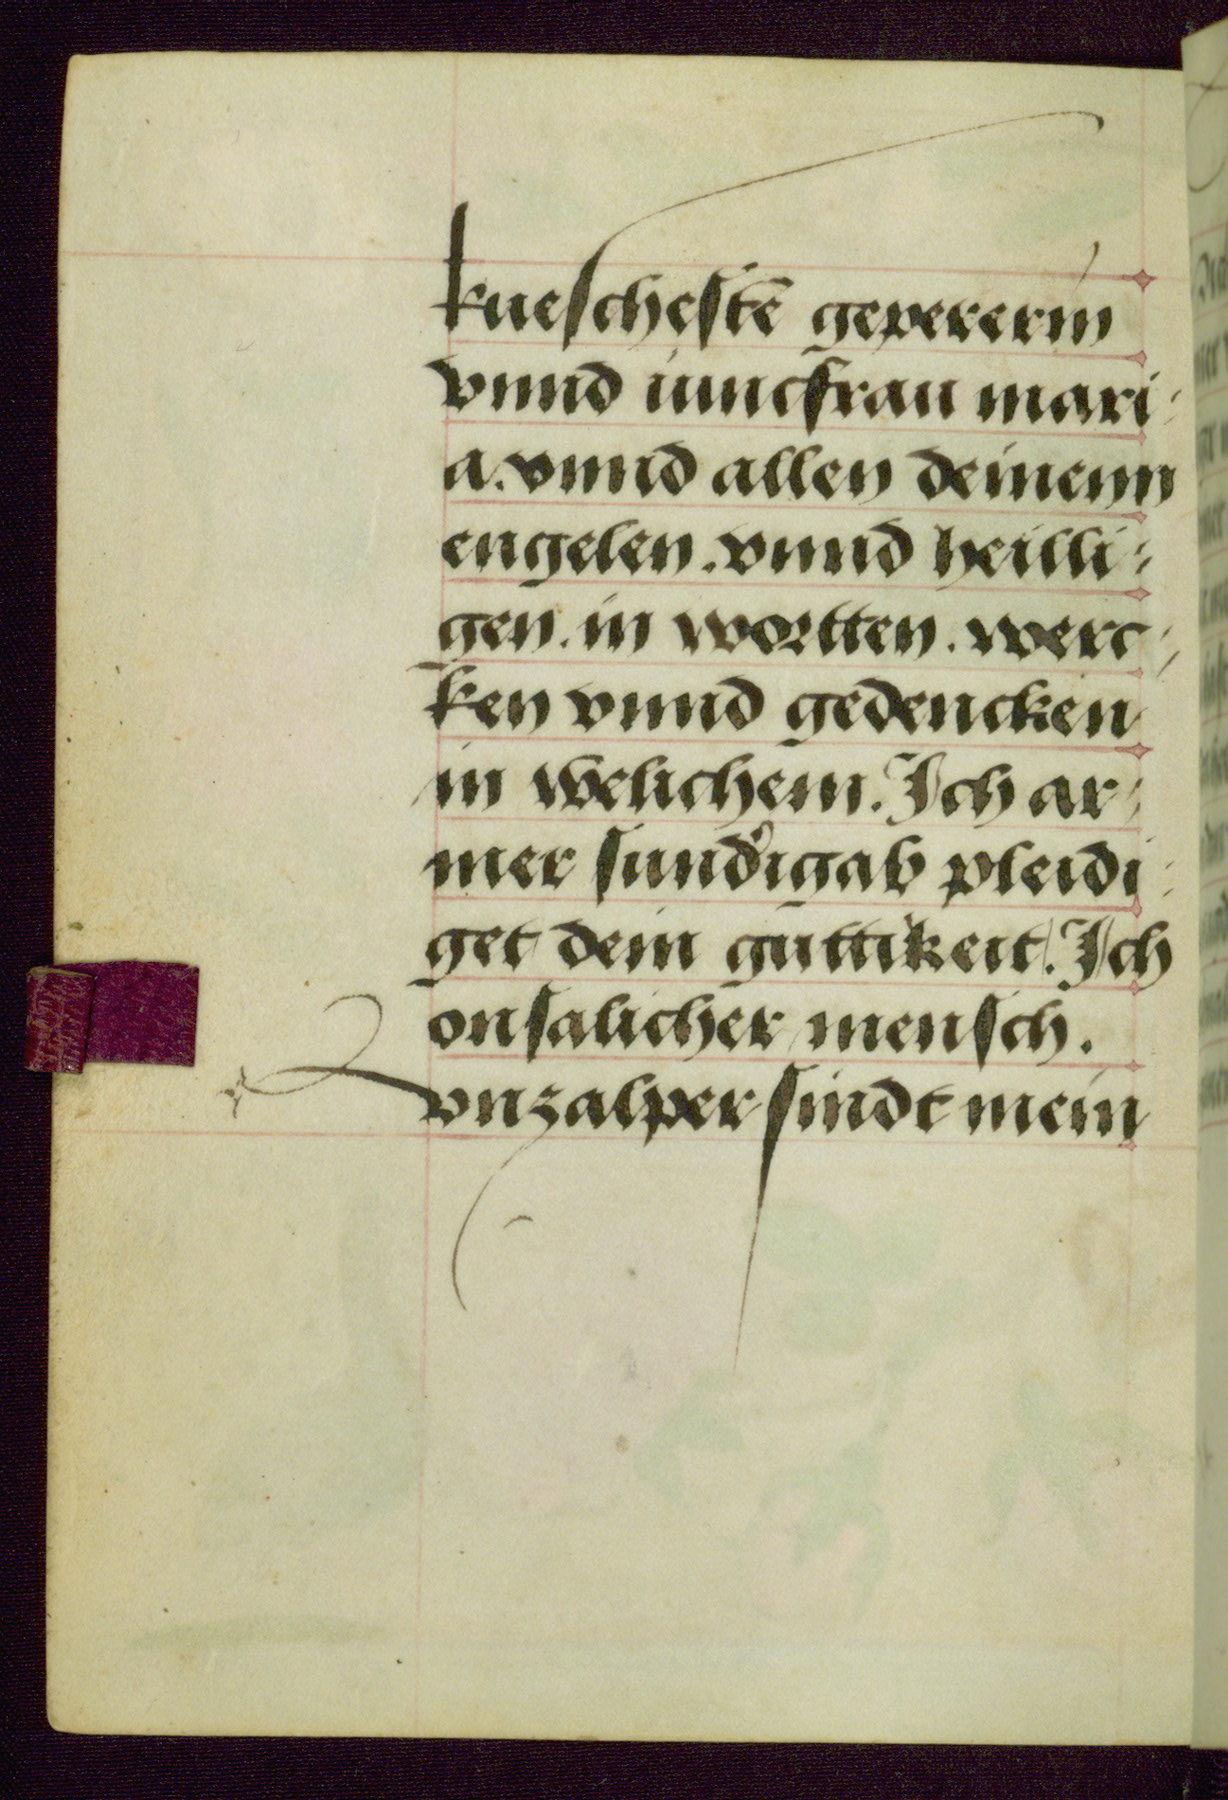 kueschestē gepererin
vnnd iunckfrau mari-
a. vnnd allen deinenn
engelen. vnnd heilli-
gen. in wortten. werc-
ken vnnd gedencken
in welichem. Ich ar-
mer sund'igab pleidi-
get dein guttikeit. Ich
onsalicher mensch.
vnzalper sindt mein